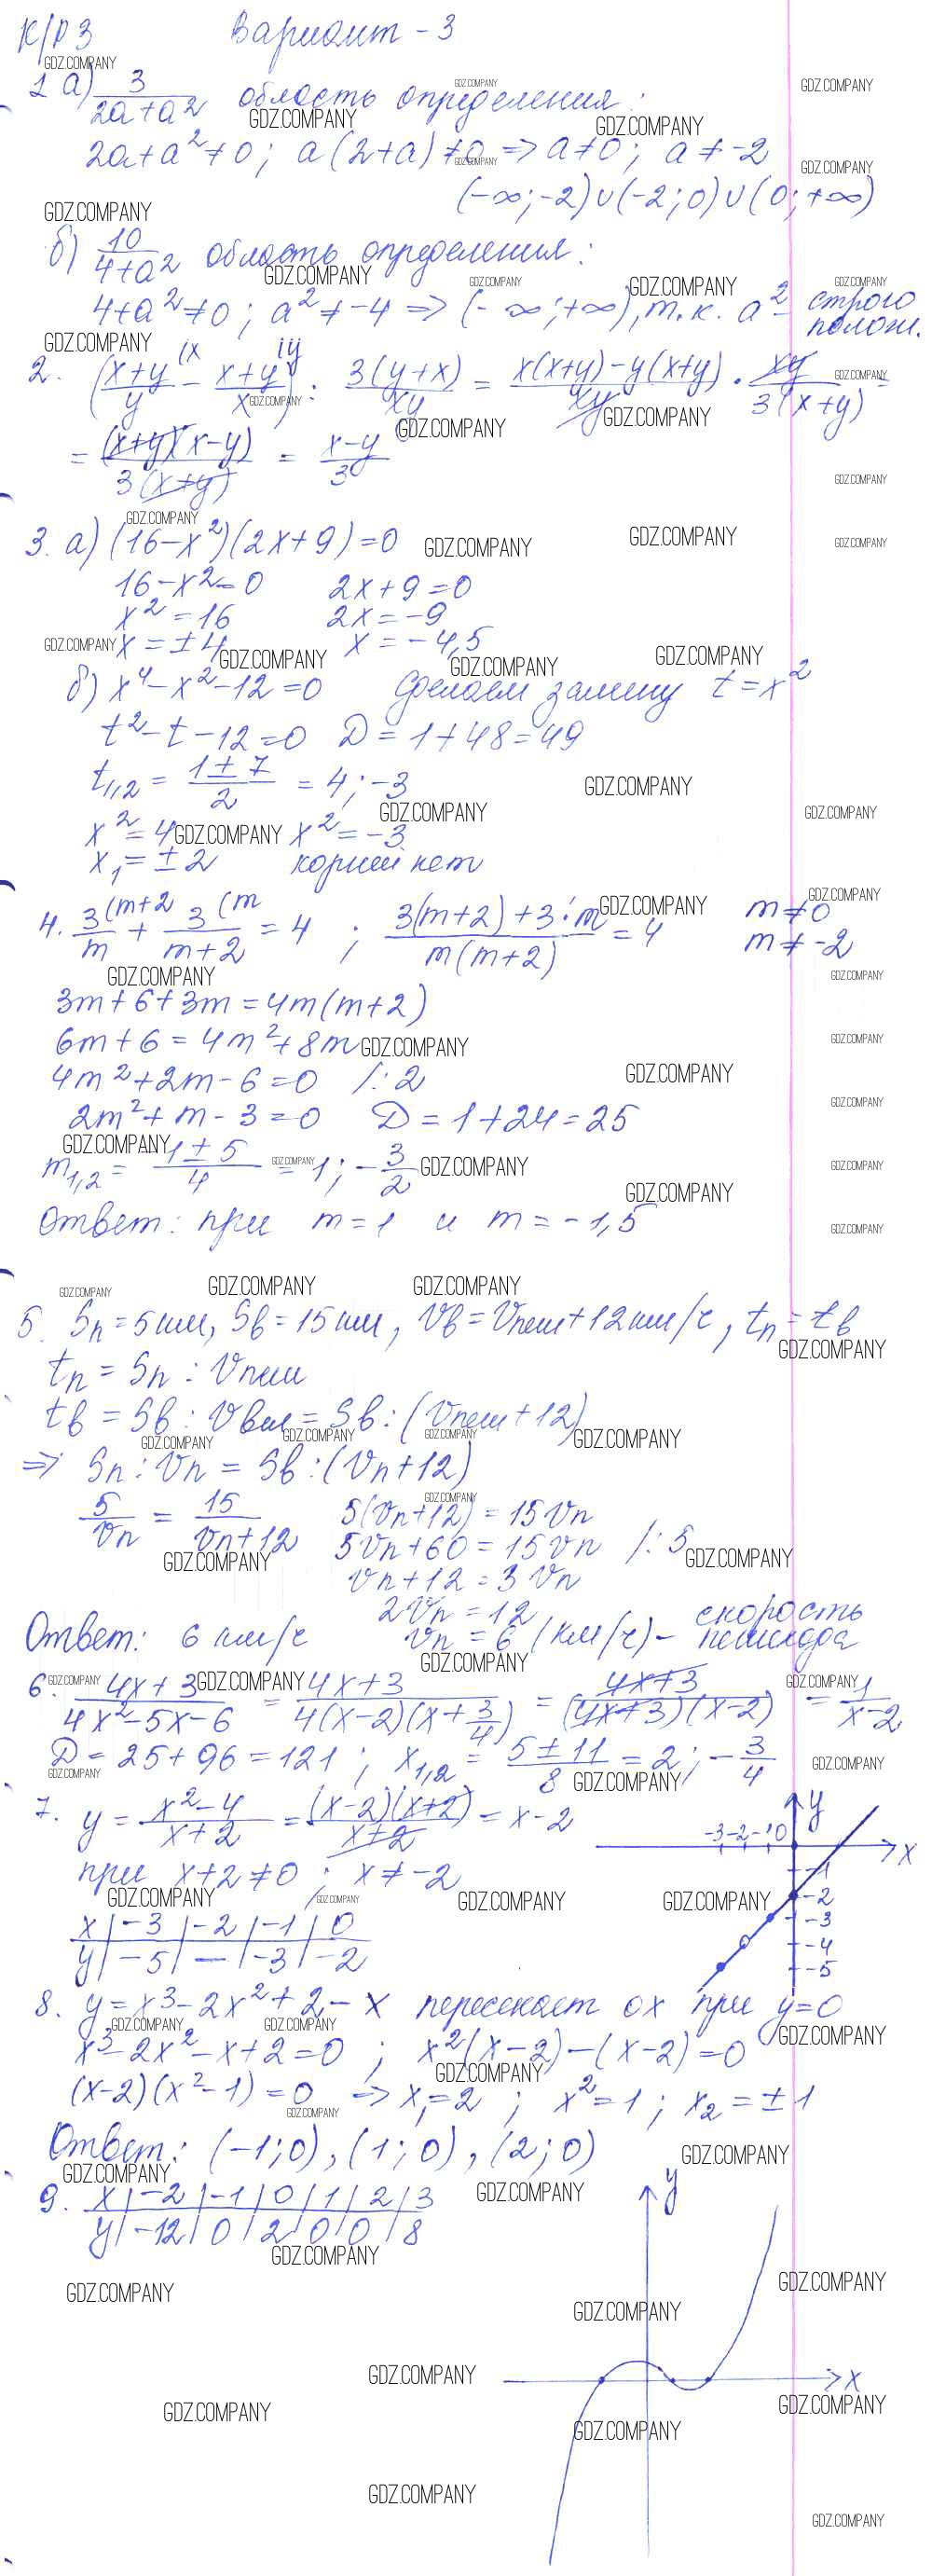 К/р 3 Вариант - 3
1 а) 3/(2a+a²) область определения:
2a+a²≠0; a(2+a)≠0 => a≠0; a≠-2
(-∞;-2)∪(-2;0)∪(0;+∞)
б) 10/(4+a²) область определения:
4+a²≠0; a²≠-4 => (-∞;+∞), т.к. a² - строго полож.
2. ((x+y)/y (x - (x+y)/x (y) : 3(y+x)/xy = (x(x+y)-y(x+y))/xy · xy/3(x+y) =
= (x+y)(x-y)/3(x+y) = (x-y)/3
3. а) (16-x²)(2x+9)=0
16-x²=0 2x+9=0
x²=16 2x=-9
x=±4 x=-4,5
б) x⁴-x²-12=0 Сделаем замену t=x²
t²-t-12=0 D=1+48=49
t1,2 = (1±7)/2 = 4;-3
x²=4 x²=-3
x1=±2 корней нет
4. 3/m (m+2 + 3/(m+2) (m = 4 ; (3(m+2)+3·m)/m(m+2) = 4 m≠0
m≠-2
3m+6+3m=4m(m+2)
6m+6=4m²+8m
4m²+2m-6=0 /:2
2m²+m-3=0 D=1+24=25
m1,2 = (-1±5)/4 = 1; -3/2
Ответ: при m=1 и m=-1,5
5. Sп=5км, Sв=15км, Vв=Vпеш+12км/ч, tп=tв
tп = Sп : Vпеш
tв = Sв : Vвел = Sв : (Vпеш+12)
=> Sп : Vп = Sв : (Vп+12)
5/Vп = 15/(Vп+12) 5(Vп+12)=15Vп
5Vп+60=15Vп /:5
Vп+12=3Vп
2Vп=12
Vп=6 (км/ч) - скорость пешехода
Ответ: 6 км/ч
6. (4x+3)/(4x²-5x-6) = (4x+3)/4(x-2)(x+3/4) = (4x+3)/(4x+3)(x-2) = 1/(x-2)
D=25+96=121; x1,2 = (5±11)/8 = 2; -3/4
7. y = (x²-4)/(x+2) = (x-2)(x+2)/(x+2) = x-2
при x+2≠0; x≠-2
x | -3 | -2 | -1 | 0
y | -5 | — | -3 | -2
y
-3 -2 -1 0
x
-1
-2
-3
-4
-5
8. y=x³-2x²+2-x пересекает ox при y=0
x³-2x²-x+2=0 ; x²(x-2)-(x-2)=0
(x-2)(x²-1)=0 => x1=2 ; x²=1; x2=±1
Ответ: (-1;0),(1;0),(2;0)
9. x | -2 | -1 | 0 | 1 | 2 | 3
y | -12 | 0 | 2 | 0 | 0 | 8
y
x
GDZ.COMPANY